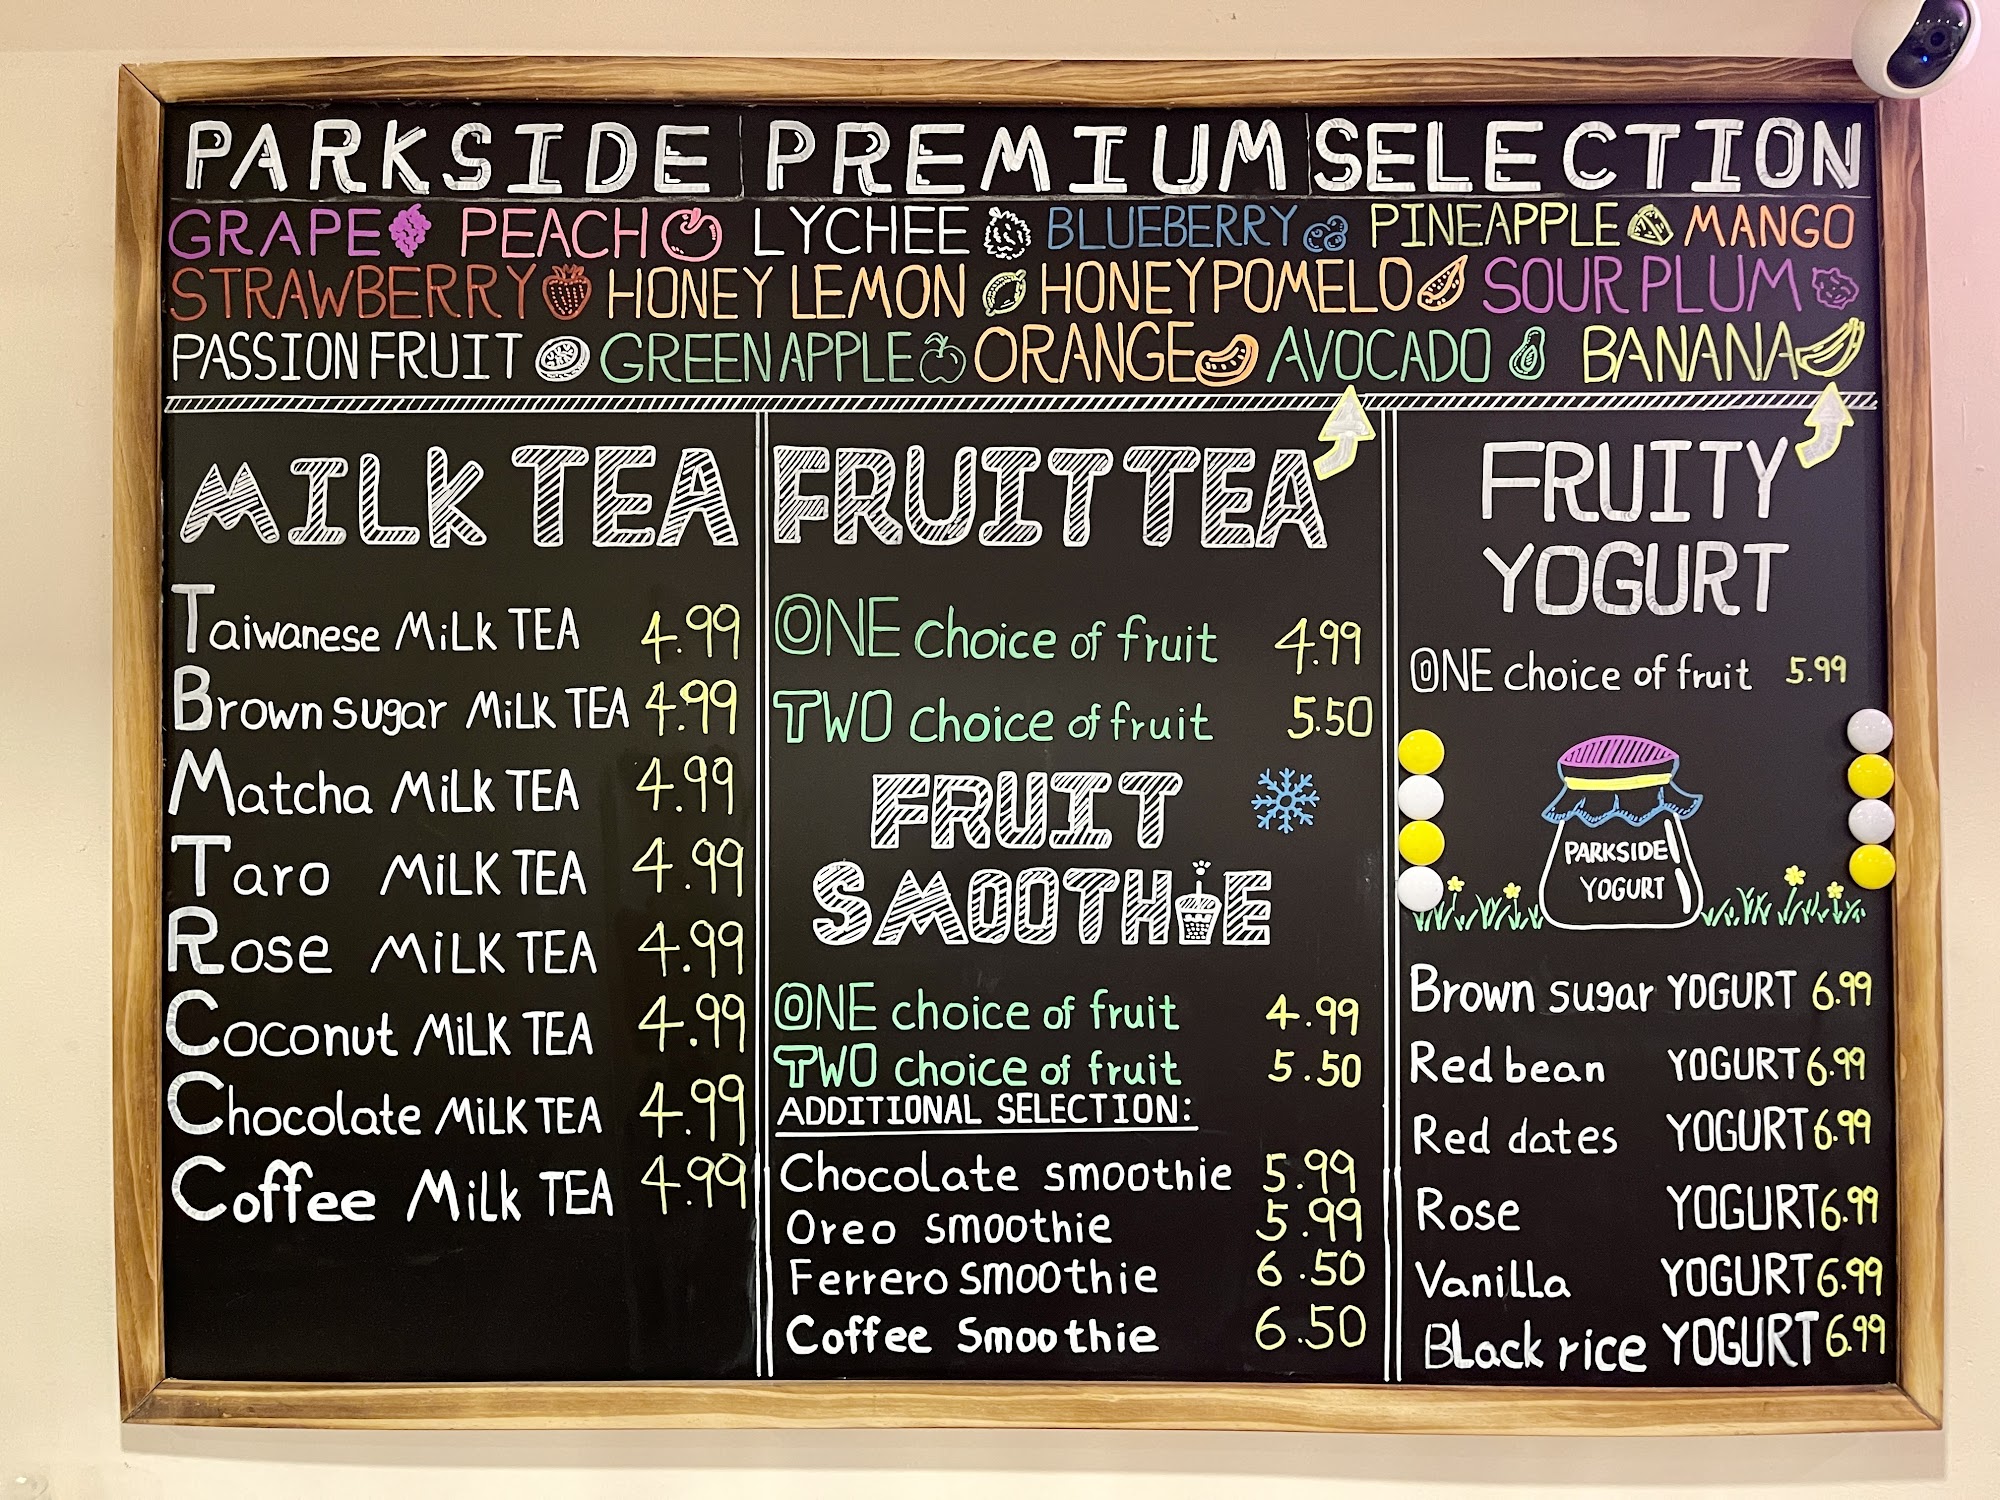 PARKSIDE PREMIUM SELECTION
GRAPE PEACH LYCHEE BLUEBERRY PINEAPPLE MANGO
STRAWBERRY HONEY LEMON HONEY POMELO SOUR PLUM
PASSION FRUIT GREEN APPLE ORANGE AVOCADO BANANA
MILK TEA
Taiwanese MiLk TEA 4.99
Brown sugar MiLK TEA 4.99
Matcha MiLk TEA 4.99
Taro MiLK TEA 4.99
Rose MiLK TEA 4.99
Coconut MiLK TEA 4.99
Chocolate MiLK TEA 4.99
Coffee MiLk TEA 4.99
FRUIT TEA
ONE choice of fruit 4.99
TWO choice of fruit 5.50
FRUIT
SMOOTHIE
ONE choice of fruit 4.99
TWO choice of fruit 5.50
ADDITIONAL SELECTION:
Chocolate smoothie 5.99
Oreo smoothie 5.99
Ferrero smoothie 6.50
Coffee Smoothie 6.50
FRUITY
YOGURT
ONE choice of fruit 5.99
PARKSIDE
YOGURT
Brown sugar YOGURT 6.99
Red bean YOGURT 6.99
Red dates YOGURT 6.99
Rose YOGURT 6.99
Vanilla YOGURT 6.99
Black rice YOGURT 6.99